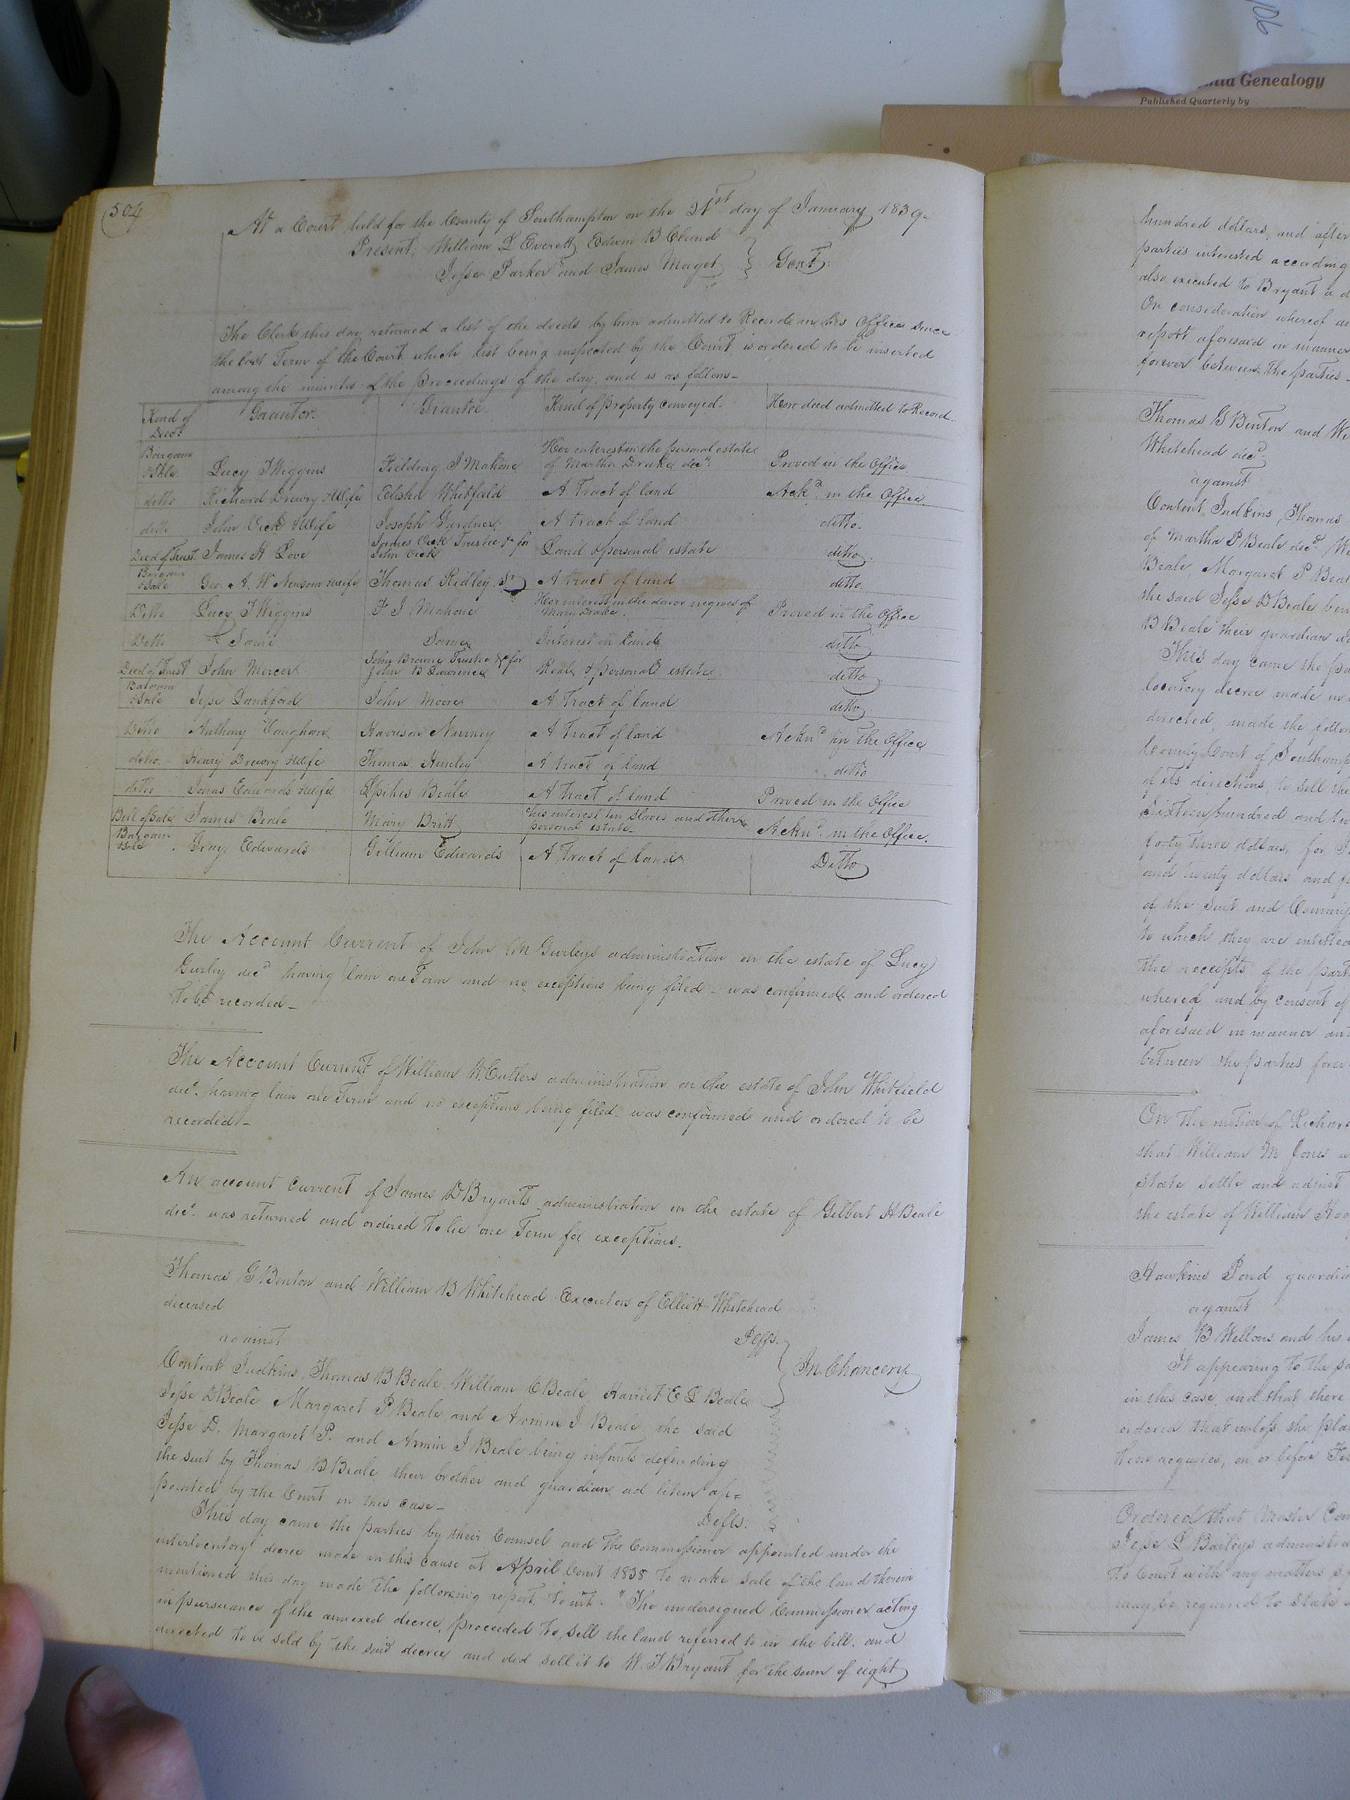 504
At a Court held for the County of Southampton on the 21st day of January 1839-
Present, William L Everett, Edwin B Claud
Jesse Parker and James Maget } Gent.
The Clerk this day returned a list of the deeds by him admitted to Record in his Office since
the last Term of the Court which list being inspected by the Court is ordered to be inserted
among the minutes of the proceedings of the day, and is as follows-
Kind of Deed Grantor Grantee Kind of property conveyed How deed admitted to Record
Bargain & Sale Lucy T Wiggins Fielding J Mahone Her interest in the personal estate of Martha Drake decd Proved in the Office
ditto Richard Drewry & Wife Elisha Whitfield A Tract of land Ackd in the Office
ditto John Vick & Wife Joseph Gardner A tract of land ditto
Deed of Trust James H Love James Vick Trustee &c for John Vick Land & personal estate ditto
Bargain & Sale Geo. A. W Newsom & wife Thomas Ridley Sr A tract of land ditto
Ditto Lucy T Wiggins F J Mahone Her interest in the dower negroes of Mary Drake Proved in the Office
Ditto Same Same Interest in land ditto
Deed of Trust John Mercer John Browne Trustee &c for John B Lawrence Real & personal estate ditto
Bargain & Sale Jesse Lankford John Moore A Tract of land ditto
Ditto Anthony Vaughan Harrison Nurney A Tract of land Acknd in the Office
ditto Henry Drewry & Wife Thomas Hunley A tract of land ditto
ditto Jonas Edwards & Wife Spikes Beale A tract of land Proved in the Office
Bill of Sale James Beale Mary Britt His interest in slaves and other personal estate- Acknd in the Office.
Bargain & Sale Gray Edwards William Edwards A Tract of land Ditto
The Account Current of John M Gurleys administration on the estate of Lucy
Gurley decd having lain one Term and no exceptions being filed - was confirmed and ordered
to be recorded-
The Account Current of William W Cutlers administration on the estate of John Whitfield
decd having lain one Term and no exceptions being filed was confirmed and ordered to be
recorded-
An account current of James D Bryants administration on the estate of Gilbert H Beale
decd was returned and ordered to lie one Term for exceptions.
Thomas G Benton and William B Whitehead Executors of Elliott Whitehead
deceased
Plffs.
against
In Chancery
Content Judkins, Thomas B Beale William C Beale Harriet E L Beale
Jesse D Beale Margaret P Beale and Armin J Beale, the said
Jesse D. Margaret P. and Armin J Beale being infants defending
the suit by Thomas B Beale their brother and guardian ad litem ap=
pointed by the Court in this case-
Defts.
This day came the parties by their Counsel and the Commissioner appointed under the
interlocutory decree made in this cause at April Court 1838 to make sale of the land therein
mentioned this day made the following report to wit. "The undersigned Commissioner acting
in pursuance of the annexed decree, proceeded to sell the land referred to in the bill, and
directed to be sold by the said decree and did sell it to W. J Bryant for the sum of eight
Genealogy
Published Quarterly by
hundred dollars, and after
parties interested according
also executed to Bryant a d
On consideration whereof
report aforesaid in manner
forever between the parties-
Thomas G Benton and
Whitehead decd
against
Content Judkins, Thomas
of Martha P Beale decd,
Beale Margaret P Beal
the said Jesse D Beale bein
B Beale their guardian
This day came the pa
locutory decree made
directed, made the follow
County Court of Southamp
of its directions, to sell the
Sixteen hundred and
forty three dollars, for
and twenty dollars and
of the Suit and Commis
to which they are entitled
the receipts of the part
whereof and by consent of
aforesaid in manner an
between the parties forev
On the motion of Richar
that William M Jones
state settle and adjust
the estate of William
Hawkins Pond guardi
against
James B Wellons and his
It appearing to the
in this case and that there
ordered that unless the Pla
these acquires, on or before
Ordered that Master Com
Jesse L Baileys administra
to Court with any matters
may be required to state